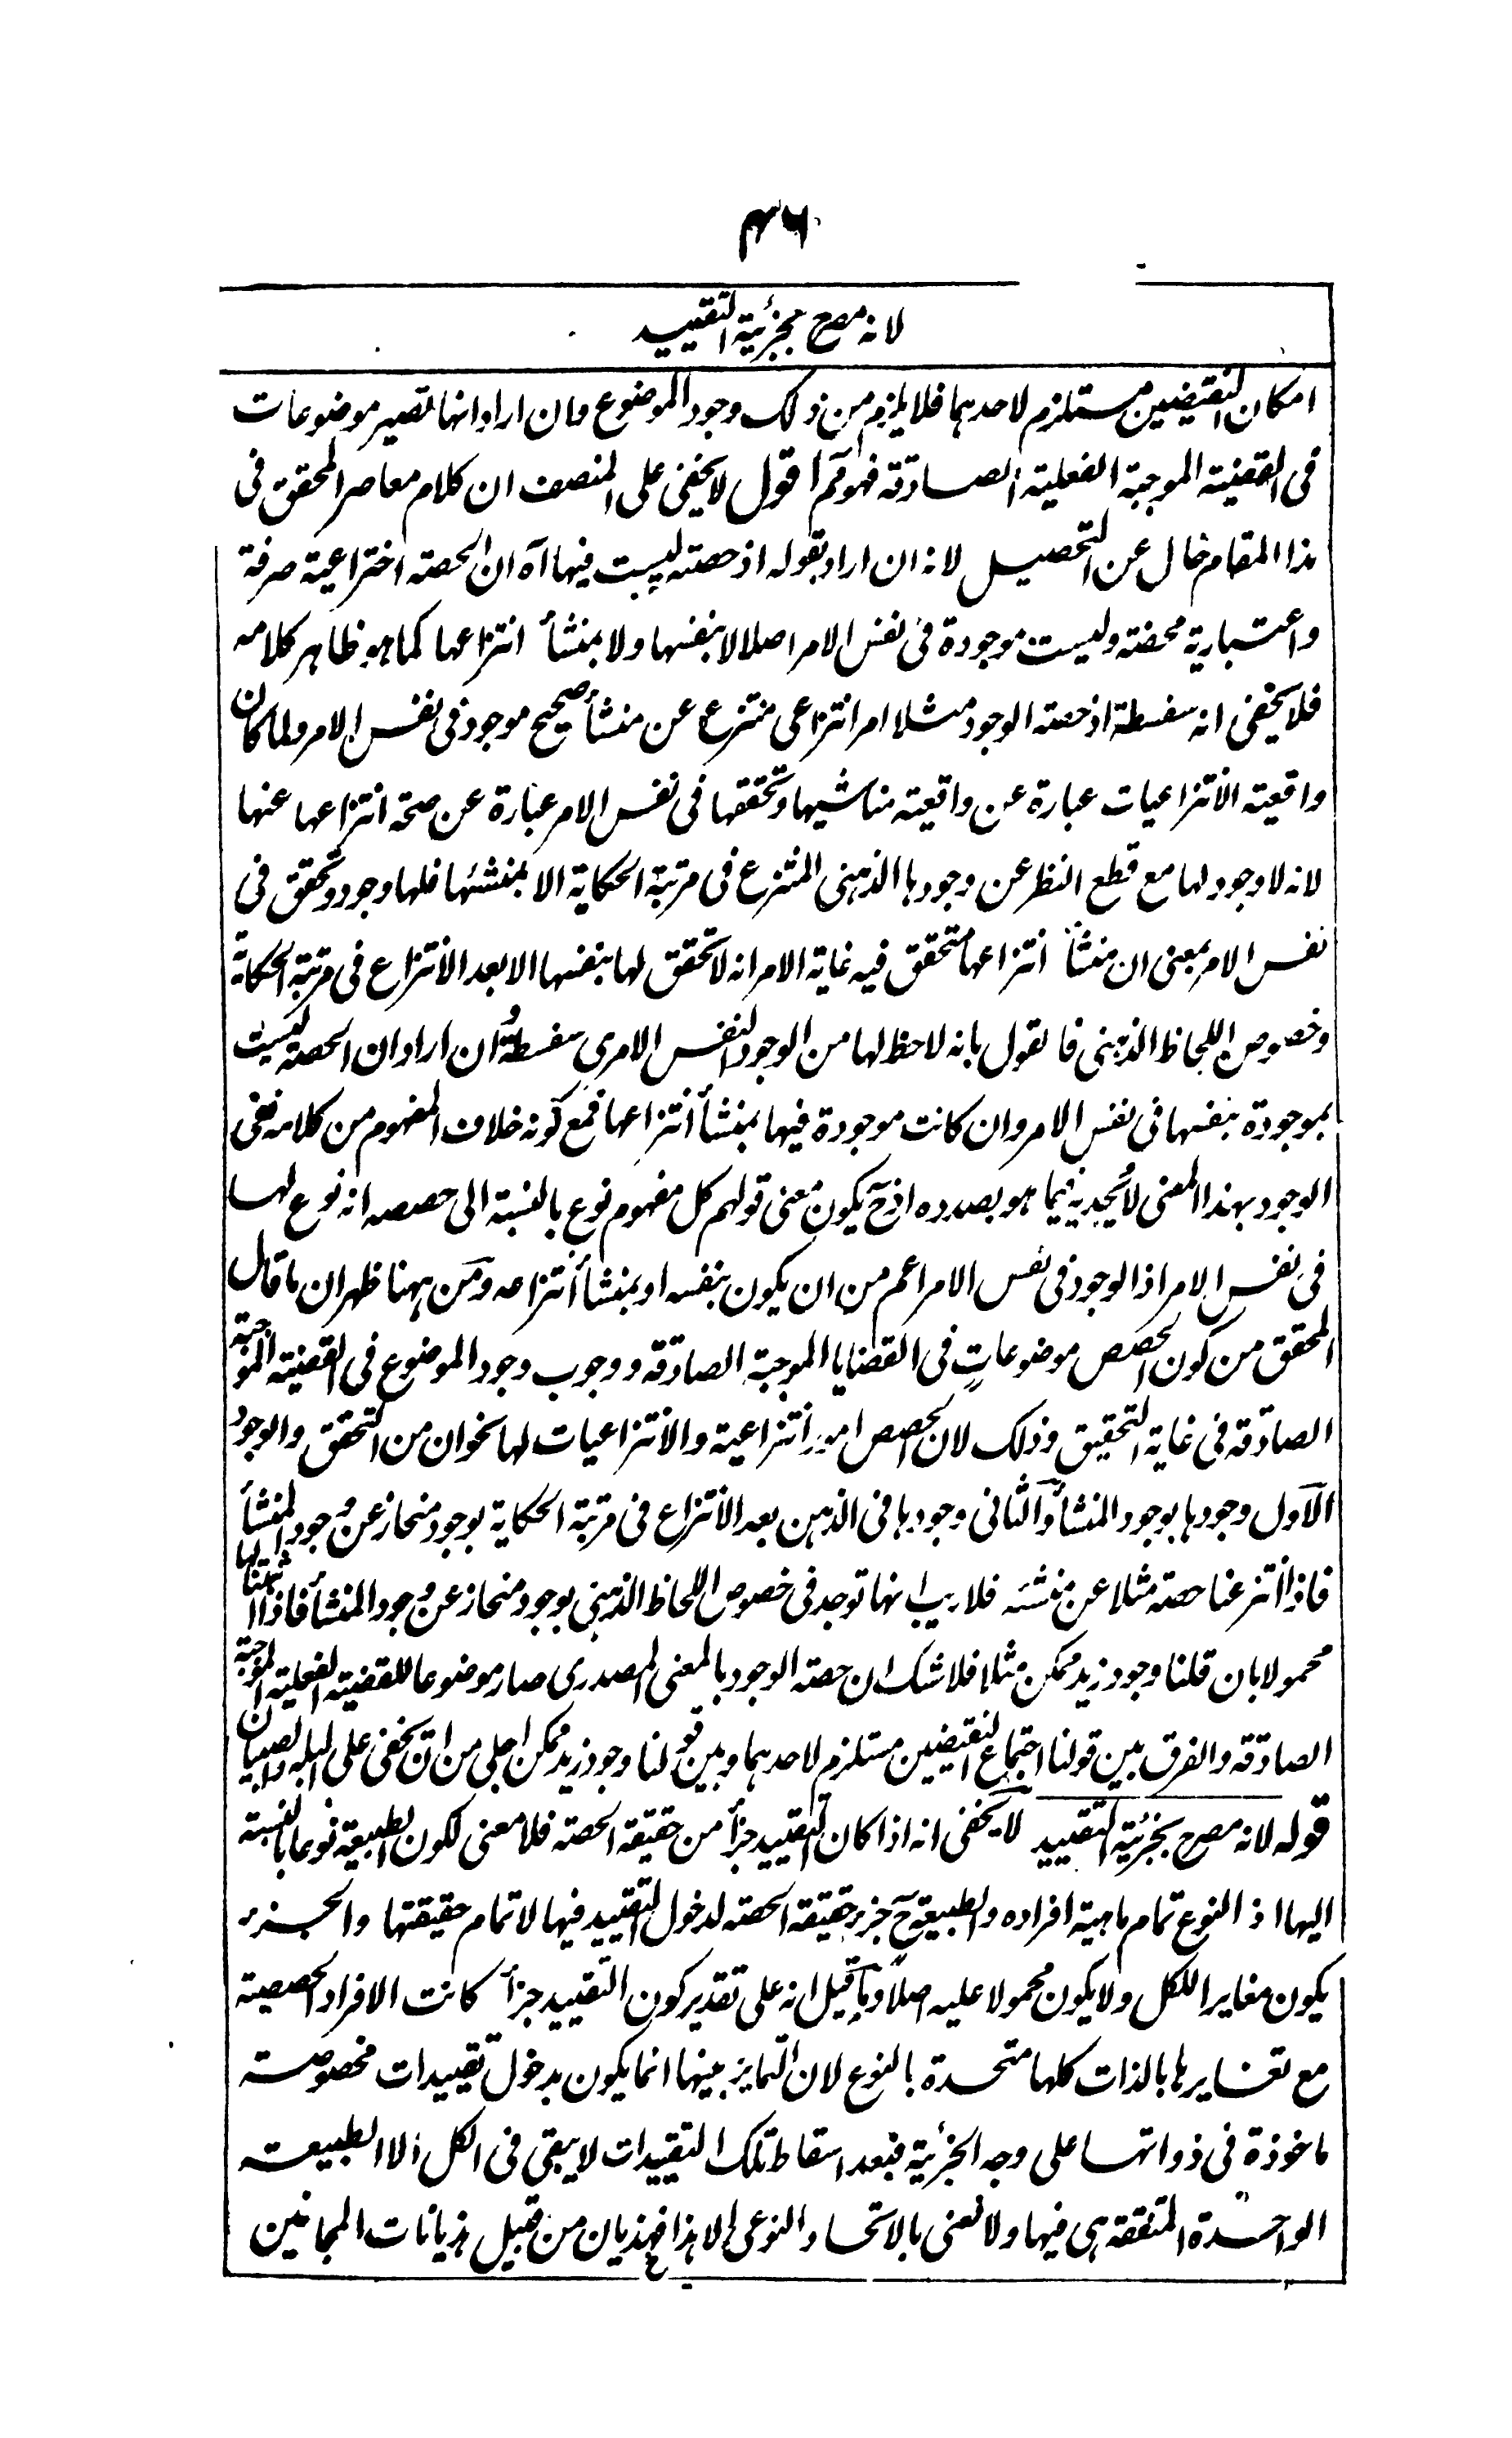 ۳۶
لانه مصرح بجزئية التقييد
امكان النقيضين مستلزم لاحدهما فلا يلزم من ذلك وجود الموضوع وان اراد انها تصير موضوعات
فى القضية الموجبة الفعلية الصادقة فهو مم اقول لا يخفى على المنصف ان كلام معاصر المحقق فى
هذا المقام خال عن التحصيل لانه ان اراد بقوله اذ حصته ليست فيها آه ان الحصة اختراعية صرفة
واعتبارية محضة وليست موجودة فى نفس الامر اصلا لا بنفسها ولا بمنشأ انتزاعها كما هو ظاهر كلامه
فلا يخفى انه سفسطة اذ حصة الوجود مثلا امر انتزاعى منتزع عن منشأ صحيح موجود فى نفس الامر ولما كان
واقعية الانتزاعيات عبارة عن واقعية مناشيها وتحققها فى نفس الامر عبارة عن صحة انتزاعها عنها
لانه لا وجود لها مع قطع النظر عن وجودها الذهنى المنتزع فى مرتبة الحكاية الا بمنشئها فلها وجود وتحقق فى
نفس الامر بمعنى ان منشأ انتزاعها متحقق فيه غاية الامر انه لا تحقق لها بنفسها الا بعد الانتزاع فى مرتبة الحكاية
وخصوص اللحاظ الذهنى فالقول بانه لا حظ لها من الوجود النفس الامرى سفسطة وان اراد ان الحصة ليست
بموجودة بنفسها فى نفس الامر وان كانت موجودة فيها بمنشأ انتزاعها فمع كونه خلاف المفهوم من كلامه نفى
الوجود بهذا المعنى لا يجديه فيما هو بصدده اذ ح يكون معنى قولهم كل مفهوم نوع بالنسبة الى حصصه انه نوع لها
فى نفس الامر اذ الوجود فى نفس الامر اعم من ان يكون بنفسه او بمنشأ انتزاعه ومن ههنا ظهر ان ما قال
المحقق من كون الحصص موضوعات فى القضايا الموجبة الصادقة ووجوب وجود الموضوع فى القضية الموجبة
الصادقة فى غاية التحقيق وذلك لان الحصص امور انتزاعية والانتزاعيات لها نحوان من التحقق والوجود
الاول وجودها بوجود المنشأ والثانى وجودها فى الذهن بعد الانتزاع فى مرتبة الحكاية بوجود منحاز عن وجود المنشأ
فاذا انتزعنا حصة مثلا عن منشئه فلا ريب انها توجد فى خصوص اللحاظ الذهنى بوجود منحاز عن وجود المنشأ فاذا اثبتنا لها
محمولا بان قلنا وجود زيد ممكن مثلا فلا شك ان حصة الوجود بالمعنى المصدرى صار موضوعا للقضية الفعلية الموجبة
الصادقة والفرق بين قولنا اجتماع النقيضين مستلزم لاحدهما وبين قولنا وجود زيد ممكن اجلى من ان يخفى على البله والصبيان
قوله لانه مصرح بجزئية التقييد لا يخفى انه اذا كان التقييد جزأ من حقيقة الحصة فلا معنى لكون الطبيعة نوعا بالنسبة
اليها اذ النوع تمام ماهية افراده والطبيعة ح جزء حقيقة الحصة لدخول التقييد فيها لا تمام حقيقتها والجزء
يكون مغايرا للكل ولا يكون محمولا عليه اصلا وما قيل انه على تقدير كون التقييد جزأ كانت الافراد الحصصية
مع تغايرها بالذات كلها متحدة بالنوع لان التمايز بينها انما يكون بدخول تقييدات مخصوصة
ماخوذة فى ذواتها على وجه الجزئية فبعد اسقاط تلك التقييدات لا يبقى فى الكل الا الطبيعة
الواحدة المتفقة هى فيها ولا نعنى بالاتحاد النوعى الا هذا فهذيان من قبيل هذيانات المجانين